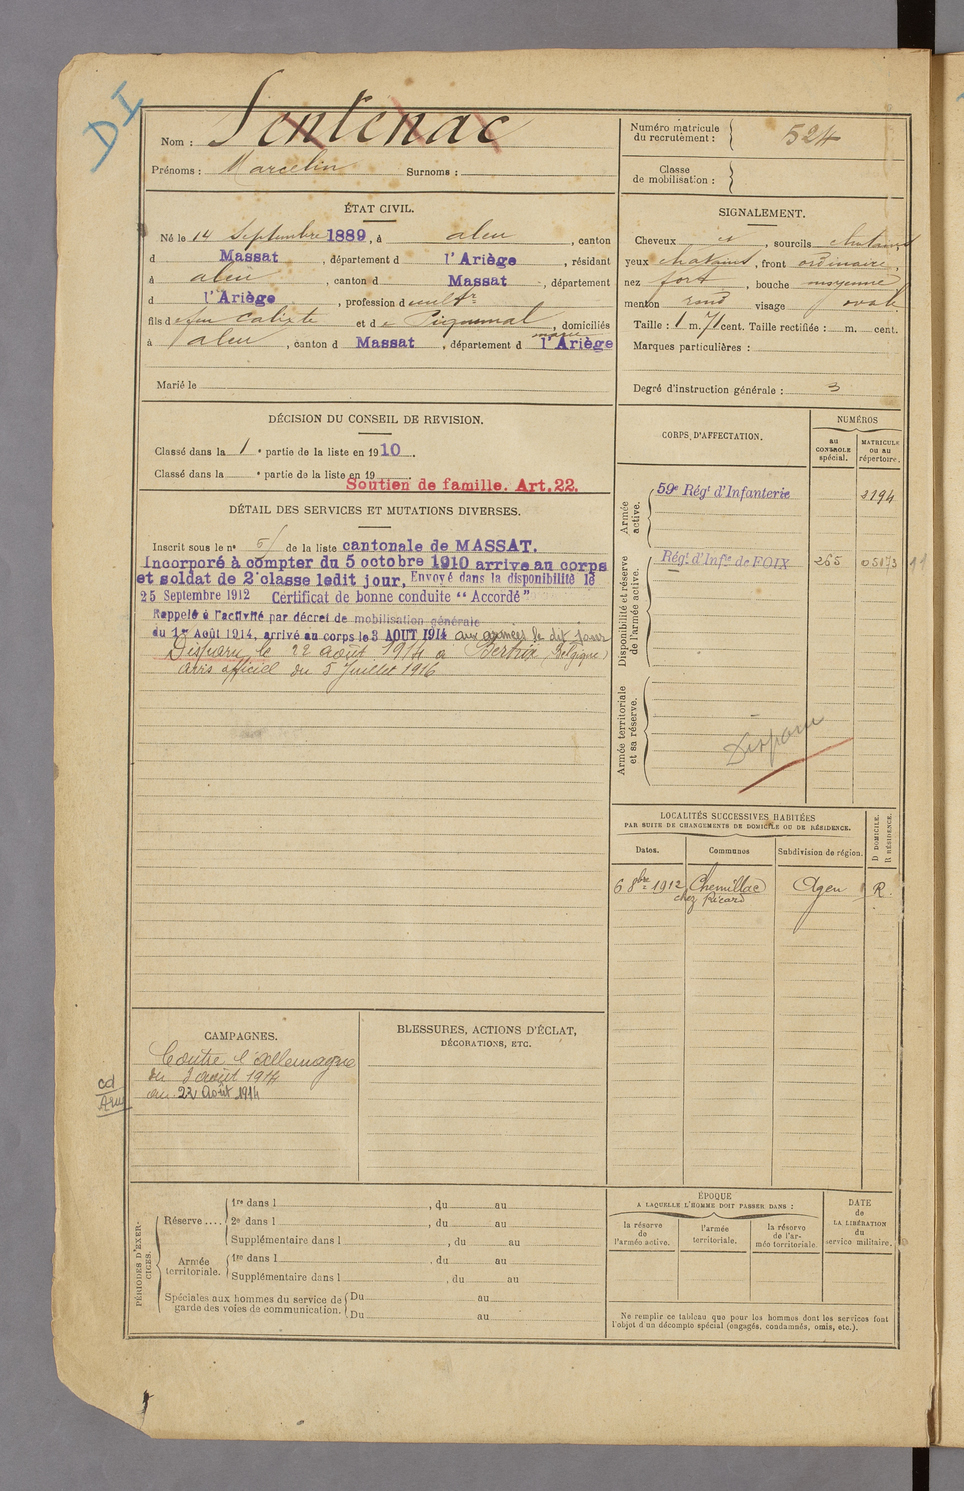 DI
Nom : Sentenac
Prénoms : Marcelin Surnoms :
Numéro matricule du recrutement : 524
Classe de mobilisation :
ÉTAT CIVIL.
Né le 14 Septembre 1889, à aleu, canton
d Massat, département d l'Ariège, résidant
à aleu, canton d Massat, département
d l'Ariège, profession d cultr
fils d feu Calixte et d , domiciliés
à aleu, canton d Massat, département d l'Ariège
Marié le
SIGNALEMENT.
Cheveux et, sourcils chatains
yeux chatains, front ordinaire,
nez fort, bouche moyenne
menton rond visage ovale
Taille : 1 m. 71 cent. Taille rectifiée : m. cent.
Marques particulières :
Degré d'instruction générale : 3
DÉCISION DU CONSEIL DE REVISION.
Classé dans la 1 e partie de la liste en 1910.
Classé dans la e partie de la liste en 19 .
Soutien de famille. Art. 22.
DÉTAIL DES SERVICES ET MUTATIONS DIVERSES.
Inscrit sous le n° 5 de la liste cantonale de MASSAT.
Incorporé à compter du 5 octobre 1910 arrivé au corps
et soldat de 2e classe ledit jour, Envoyé dans la disponibilité le
25 Septembre 1912 Certificat de bonne conduite "Accordé"
Rappelé à l'activité par décret de mobilisation générale
du 1er Août 1914, arrivé au corps le 3 AOUT 1914 aux armées le dit jour
Disparu le 22 août 1914 à Bertrix (Belgique)
avis officiel du 5 Juillet 1916
CORPS D'AFFECTATION.
NUMÉROS
au CONTROLE spécial.
MATRICULE ou au répertoire.
Armée active.
59e Régt d'Infanterie 2194
Disponibilité et réserve de l'armée active.
Régt d'Infie de FOIX 265 05173 11
Armée territoriale et sa réserve.
Disparu
LOCALITÉS SUCCESSIVES HABITÉES
PAR SUITE DE CHANGEMENTS DE DOMICILE OU DE RÉSIDENCE.
Dates. Communes Subdivision de région. D DOMICILE. R RÉSIDENCE.
6 8bre 1912 Chemillac Agen R.
chez Ricard
CAMPAGNES.
Contre l'Allemagne
du 3 août 1914
au 22 Août 1914
cd
BLESSURES, ACTIONS D'ÉCLAT,
DÉCORATIONS, ETC.
PÉRIODES D'EXERCICES.
Réserve ....
1re dans l , du au
2e dans l , du au
Supplémentaire dans l , du au
Armée territoriale.
1re dans l , du au
Supplémentaire dans l , du au
Spéciales aux hommes du service de garde des voies de communication.
Du au
Du au
ÉPOQUE
A LAQUELLE L'HOMME DOIT PASSER DANS :
la réserve de l'armée active.
l'armée territoriale.
la réserve de l'armée territoriale.
DATE de LA LIBÉRATION du service militaire.
Ne remplir ce tableau que pour les hommes dont les services font
l'objet d'un décompte spécial (engagés, condamnés, omis, etc.).